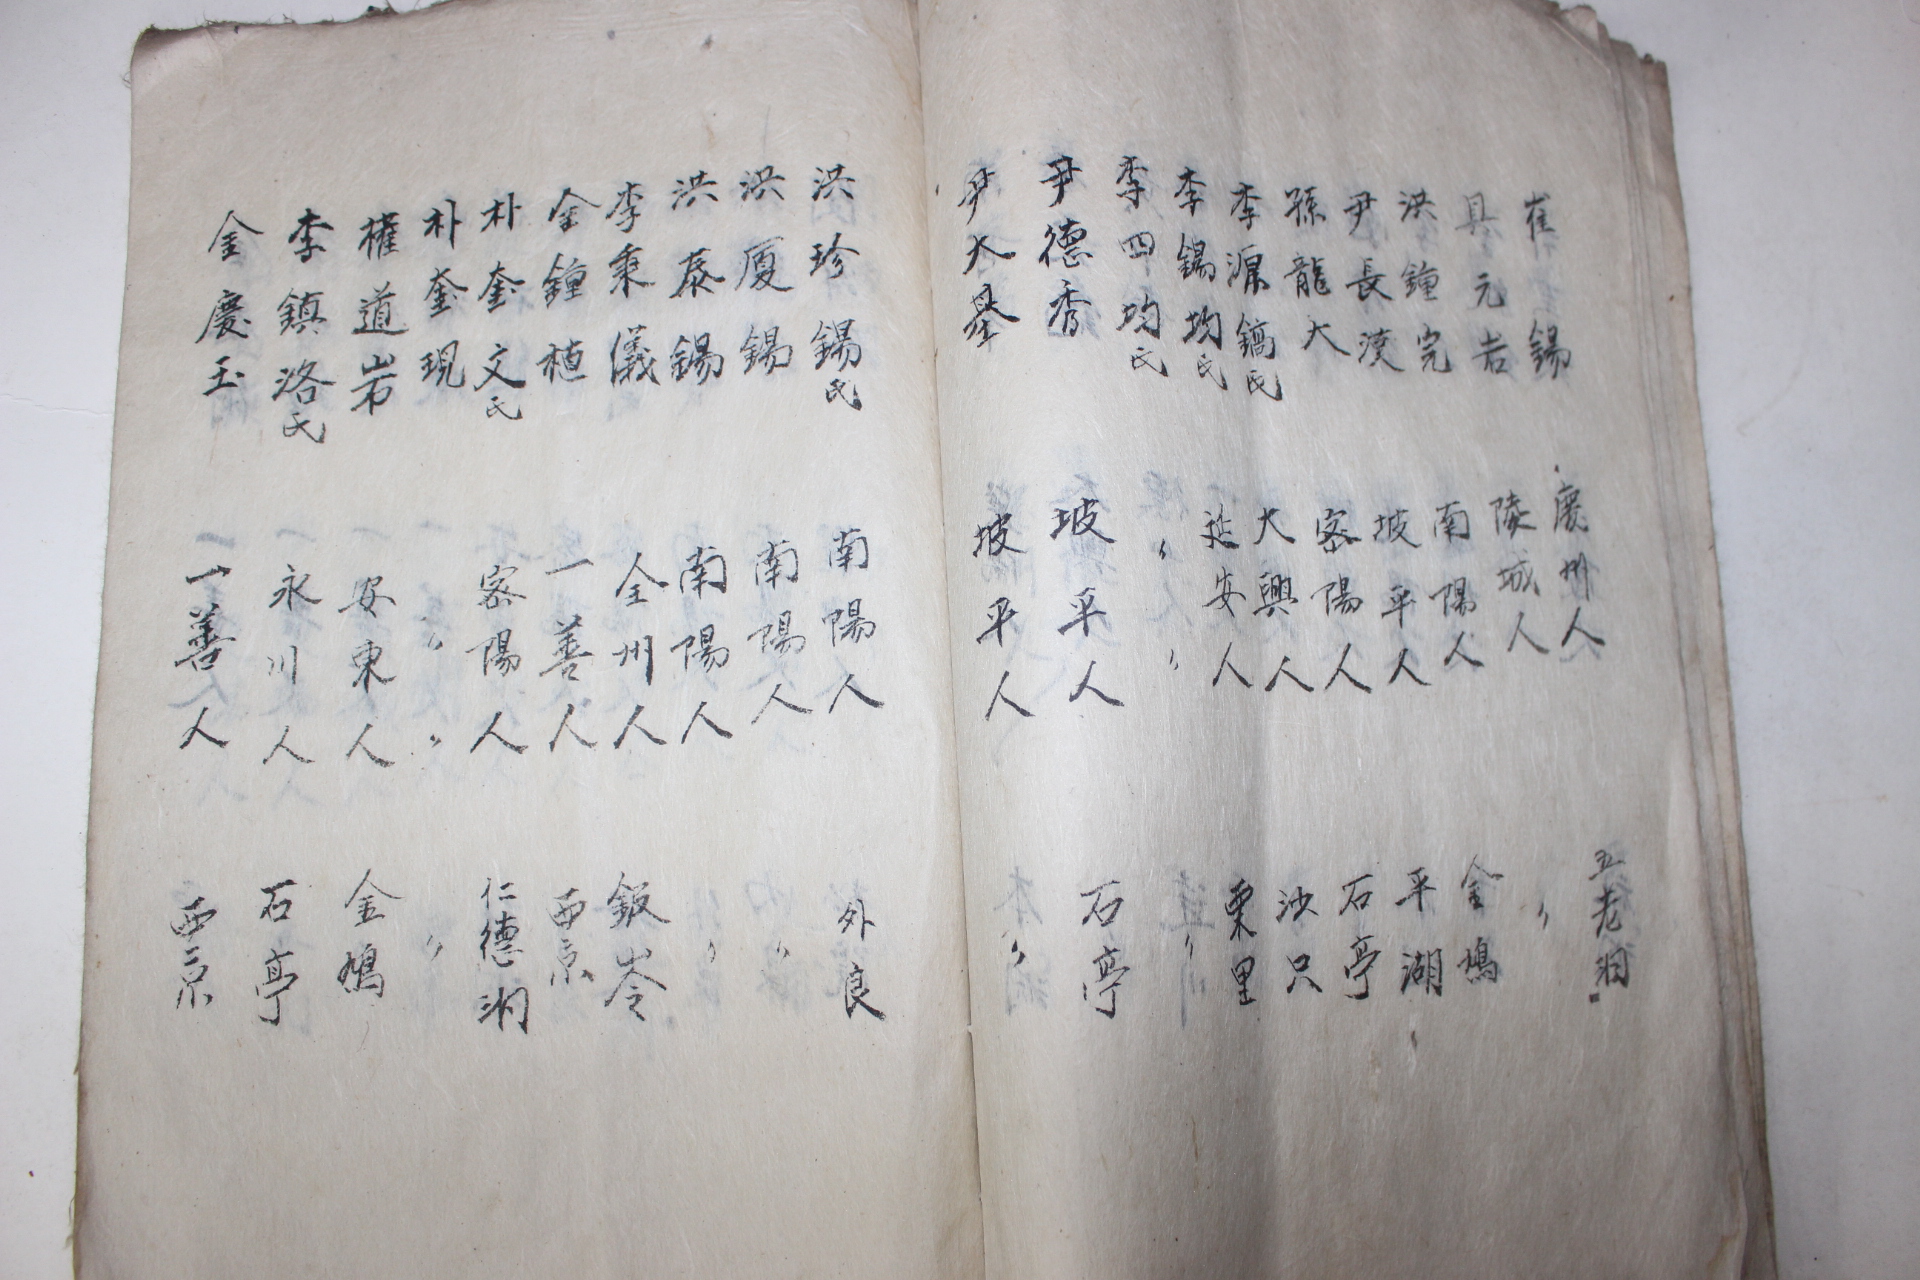 崔 錫 慶州人 五老洞
具元岩 陵城人 〃
洪鍾完 南陽人 金鳩
尹長漢 坡平人 平湖
孫龍大 密陽人 石亭
李源鎬氏 大興人 沙只
李錫均氏 延安人 栗里
李四均氏 〃 〃 〃
尹德香 坡平人 石亭
尹大基 坡平人 〃
洪珍錫氏 南陽人 外良
洪厦錫 南陽人 〃
洪泰錫 南陽人 〃
李秉儀 全州人 鈑岺
金鍾植 一善人 西京
朴奎文氏 密陽人 仁德洞
朴奎現 〃 〃 〃
權道岩 安東人 金鳩
李鎮洛氏 永川人 石亭
金慶玉 一善人 西京